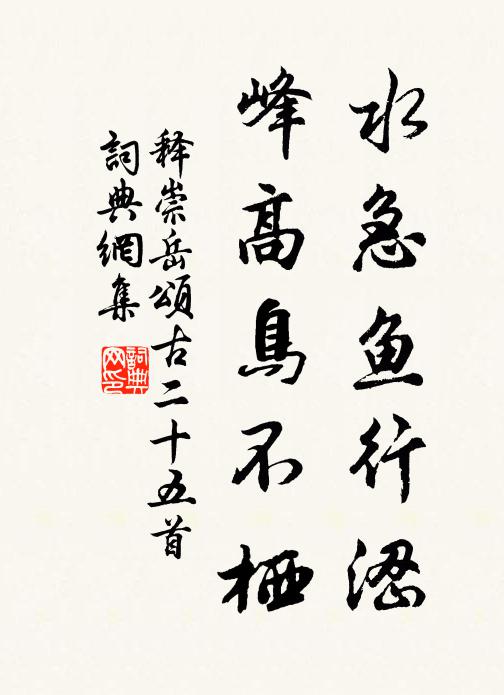 水急鱼行涩
峰高鳥不栖
释崇岳頌古二十五首
詞典網集
詞典网印